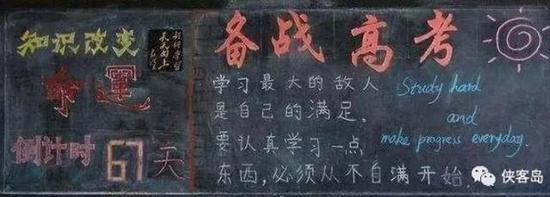 知识改变
命運
倒计时 67 天
好好学习
天天向上
备战高考
学习最大的敌人
是自己的满足.
要认真学习一点
东西,必须从不自满开始.
Study hard
and
make progress everyday.
侠客岛